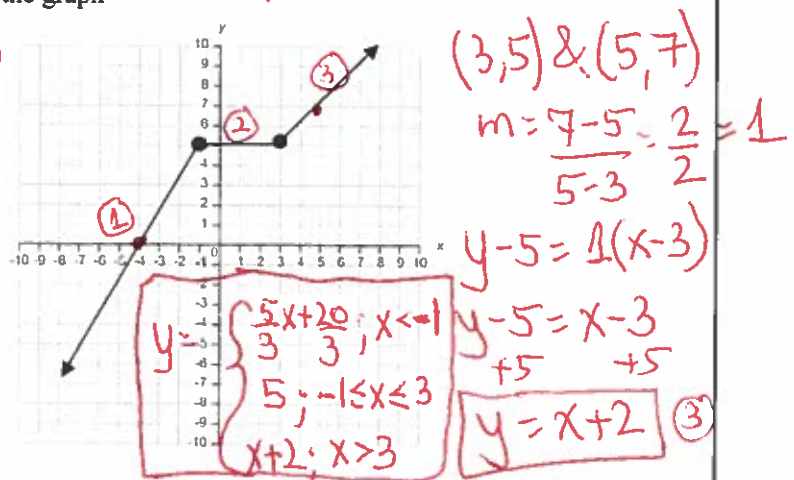 the graph
y
10
9
8
7
6
4
3
2
1
-10 -9 -8 -7 -6 -5 -4 -3 -2 -1 0 1 2 3 4 5 6 7 8 9 10 x
-1
-2
-3
-4
-5
-6
-7
-8
-9
-10
1
2
3
y = { 5/3 x + 20/3 ; x < -1
5 ; -1 ≤ x ≤ 3
x+2 ; x > 3
(3,5) & (5,7)
m = 7-5/5-3 = 2/2 = 1
y-5 = 1(x-3)
y-5 = x-3
+5 +5
y = x+2 3